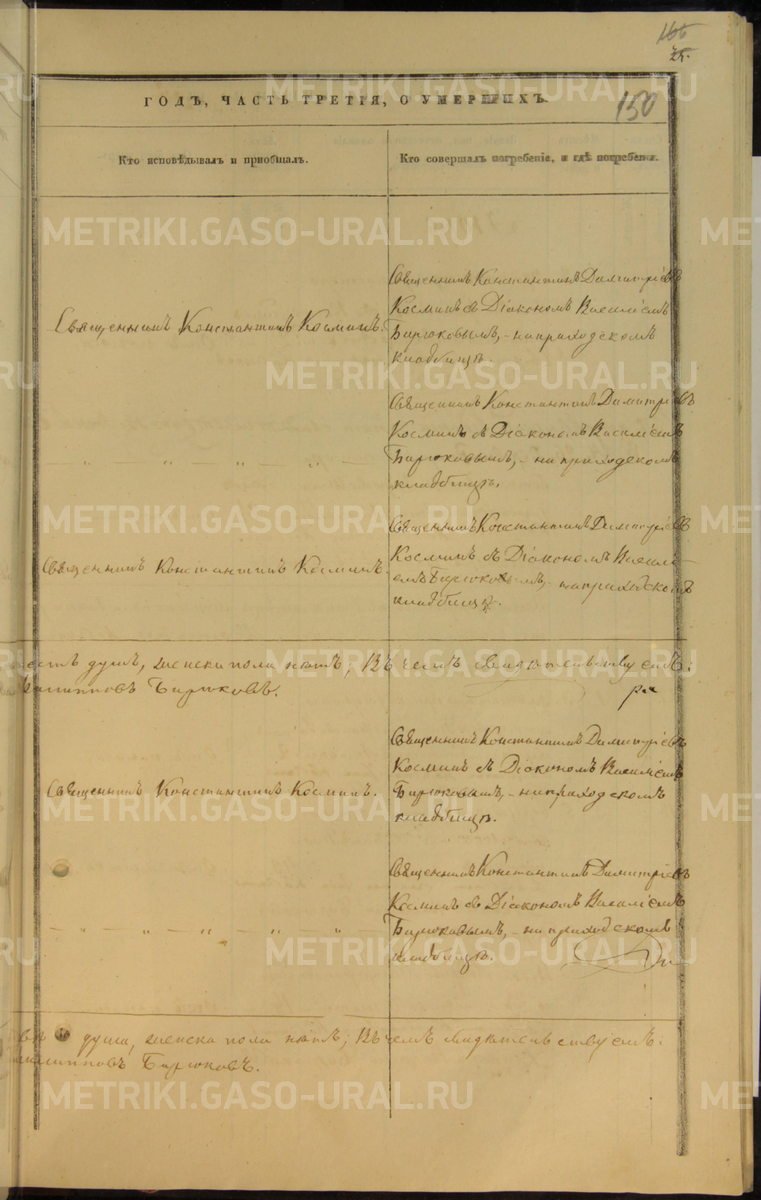 166
25.
ГОДЪ, ЧАСТЬ ТРЕТІЯ, О УМЕРШИХЪ.
150
Кто исповѣдывалъ и пріобщалъ.
Кто совершалъ погребеніе, и гдѣ погребены.
Священникъ Константинъ Космин​ъ.
Священникъ Константинъ Димитріевъ
Косминъ съ Діакономъ Василіемъ
Бирюковымъ, - на приходскомъ
кладбищѣ.
Священникъ Константинъ Димитріевъ
Косминъ съ Діакономъ Василіемъ
" " " — " —
Бирюковымъ, - на приходскомъ
кладбищѣ.
Священникъ Константинъ Косминъ.
Священникъ Константинъ Димитріевъ
Косминъ съ Діакономъ Васили-
емъ Бирюковымъ, - на приходскомъ
кладбищѣ.
душъ, женска пола нѣтъ; Въ чемъ свидѣтельствуемъ:
Филипповъ Бирюковъ.
Священникъ Константинъ Косминъ.
Священникъ Константинъ Димитріевъ
Косминъ съ Діакономъ Василіемъ
Бирюковымъ, - на приходскомъ
кладбищѣ.
Священникъ Константинъ Димитріевъ
Косминъ съ Діакономъ Василіемъ
— " — " — " " " —
Бирюковымъ, - на приходскомъ
кладбищѣ.
душа, женска пола нѣтъ; Въ чемъ свидѣтельствуемъ:
Филипповъ Бирюковъ.
METRIKI.GASO-URAL.RU